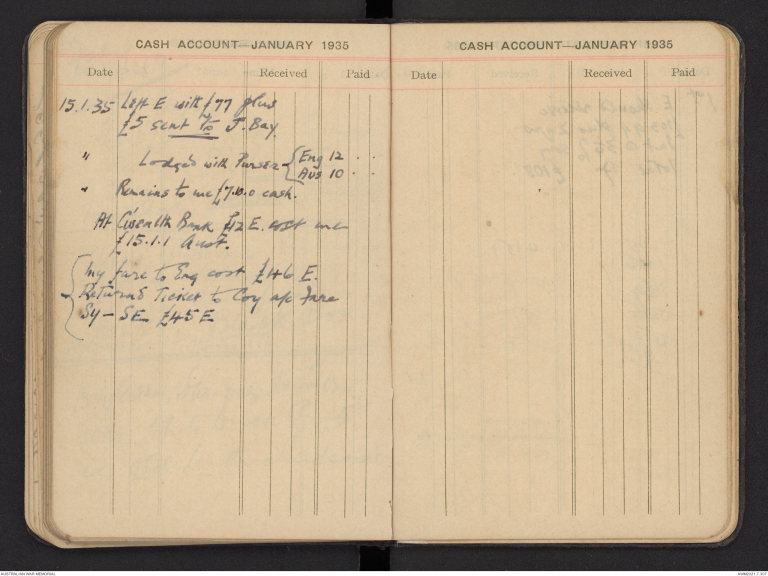 CASH ACCOUNT—JANUARY 1935
Date Received Paid
15.1.35 Left E with £77 plus
£5 sent to J. Bay
" Lodged with Purser Eng 12 . .
Aus 10 . .
" Remains to me £7.10.0 cash.
At C'wealth Bank £12 E. cost me
£15.1.1 Aust.
My fare to Eng cost £46 E.
Returned Ticket to Coy a/c Fare
Sy — SE £45 E
CASH ACCOUNT—JANUARY 1935
Date Received Paid
AUSTRALIAN WAR MEMORIAL
AWM2021.7.307